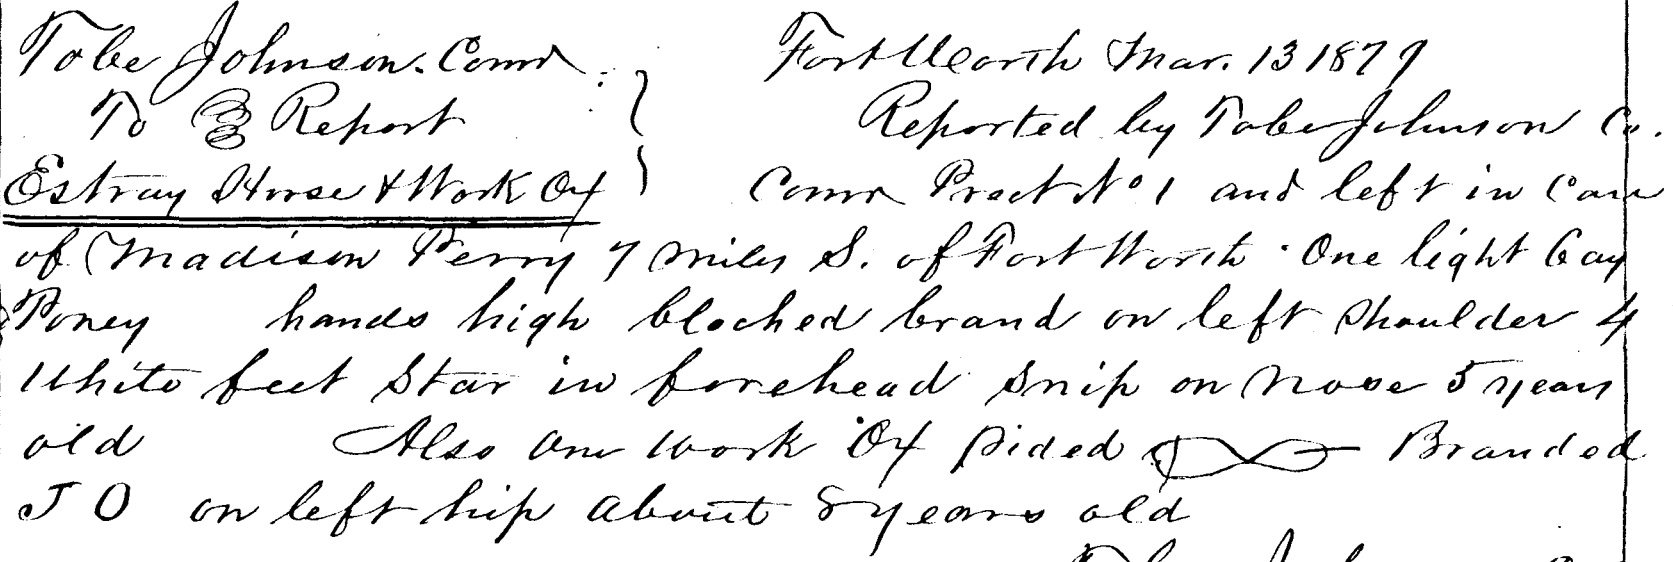 Tobe Johnson. Comr
To Report
Estray Horse & Work Ox
Fort Worth Mar. 13 1879
Reported by Tobe Johnson Co.
Comr Prect No 1 and left in Care
of Madison Perry 7 miles S. of Fort Worth. One light bay
Poney hands high bloched brand on left shoulder 4
White feet Star in forehead Snip on Nose 5 years
old Also one work Ox pided Branded
J O on left hip about 8 years old